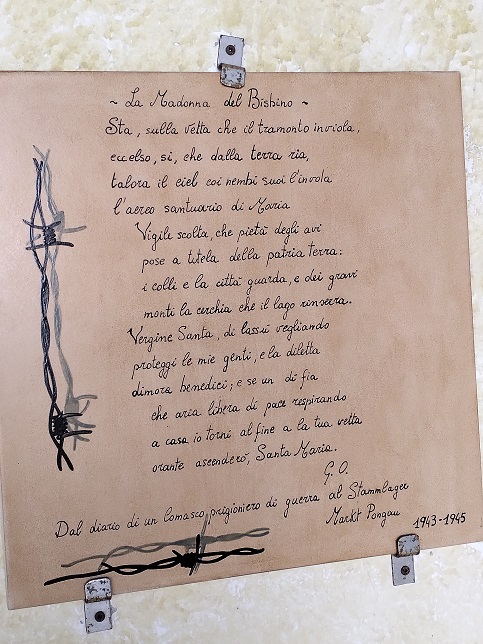 ~ La Madonna del Bisbino ~
Sta, sulla vetta che il tramonto inviola,
eccelso, si, che dalla terra ria,
talora il ciel coi nembi suoi l'invola
l'aereo santuario di Maria
Vigile scolta, che pietà degli avi
pose a tutela della patria terra:
i colli e la città guarda, e dei gravi
monti la cerchia che il lago rinserra.
Vergine Santa, di lassù vegliando
proteggi le mie genti, e la diletta
dimora benedici; e se un dì fia
che aria libera di pace respirando
a casa io torni al fine a la tua vetta
orante ascenderò, Santa Maria.
G. O.
Dal diario di un Comasco prigioniero di guerra al Stammlager
Markt Pongau 1943-1945